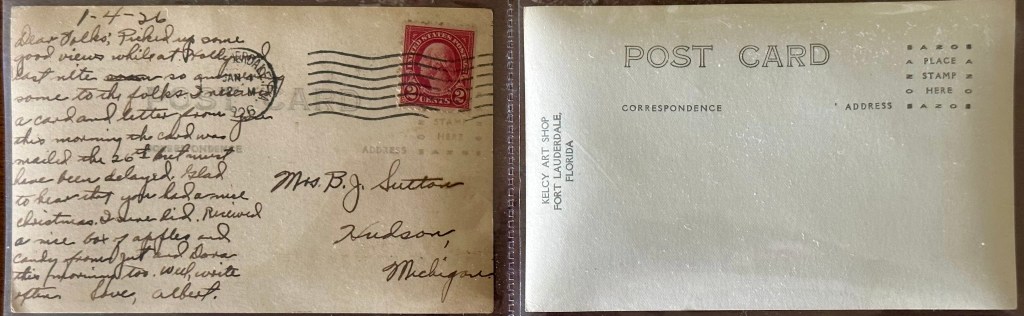 1-4-26
Dear Folks; Picked up some
good views while at Hollywood
last nite so
some to the folks. I received
a card and letter from you
this morning the card was
mailed the 26th but must
have been delayed. Glad
to hear that you had a nice
christmas. I sure did. Received
a nice box of apples and
candy from and Dora
this morning too. Well, write
often Love, Albert.
JAN 4
12 M
1926
UNITED STATES POSTAGE
2 CENTS 2
POST CARD
PLACE
STAMP
HERE
CORRESPONDENCE
ADDRESS
Mrs. B. J. Sutton
Hudson,
Michigan
POST CARD
AZO
PLACE
STAMP
HERE
AZO
CORRESPONDENCE
ADDRESS
KELCY ART SHOP
FORT LAUDERDALE,
FLORIDA